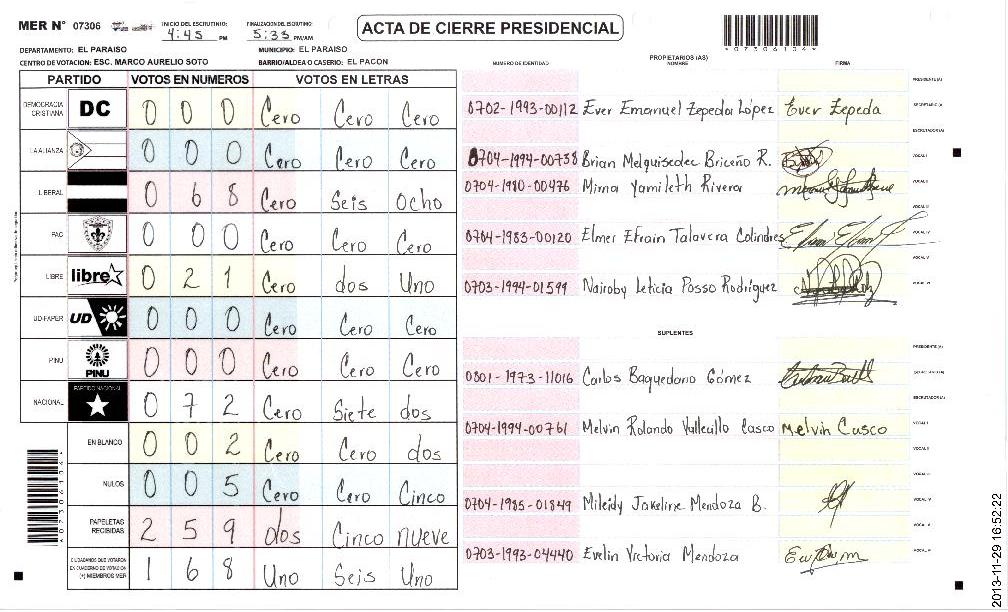 MER N° 07306
INICIO DEL ESCRUTINIO: 4:45 PM
FINALIZACION DEL ESCRUTINIO: 5:33 PM/AM
ACTA DE CIERRE PRESIDENCIAL
*07306104*
DEPARTAMENTO: EL PARAISO
MUNICIPIO: EL PARAISO
CENTRO DE VOTACION: ESC. MARCO AURELIO SOTO
BARRIO/ALDEA O CASERIO: EL PACON
PARTIDO VOTOS EN NUMEROS VOTOS EN LETRAS
DEMOCRACIA CRISTIANA DC 0 0 0 Cero Cero Cero
LA ALIANZA 0 0 0 Cero Cero Cero
LIBERAL 0 6 8 Cero Seis Ocho
PAC 0 0 0 Cero Cero Cero
LIBRE libre 0 2 1 Cero dos Uno
UD-FAPER UD 0 0 0 Cero Cero Cero
PINU PINU 0 0 0 Cero Cero Cero
NACIONAL PARTIDO NACIONAL 0 7 2 Cero Siete dos
EN BLANCO 0 0 2 Cero Cero dos
NULOS 0 0 5 Cero Cero Cinco
PAPELETAS RECIBIDAS 2 5 9 dos Cinco nueve
CIUDADANOS QUE VOTARON EN CUADERNO DE VOTACION (+) MIEMBROS MER 1 6 8 Uno Seis Uno
PROPIETARIOS (AS)
NUMERO DE IDENTIDAD NOMBRE FIRMA
PRESIDENTE (A)
0702-1993-00112 Ever Emanuel Zepeda López Ever Zepeda SECRETARIO (A)
ESCRUTADOR (A)
0704-1994-00738 Brian Melquisedec Briceño R. VOCAL I
0704-1980-00476 Mirna Yamileth Rivera VOCAL II
VOCAL III
0704-1983-00120 Elmer Efrain Talavera Colindres VOCAL IV
VOCAL V
0703-1994-01599 Nairoby Leticia Posso Rodríguez VOCAL VI
SUPLENTES
PRESIDENTE (A)
0801-1973-11016 Carlos Baquedano Gómez SECRETARIO (A)
ESCRUTADOR (A)
0704-1994-00761 Melvin Rolando Vallecillo Casco Melvin Casco VOCAL I
VOCAL II
VOCAL III
0704-1985-01849 Mileidy Jakeline Mendoza B. VOCAL IV
VOCAL V
0703-1993-04440 Evelin Victoria Mendoza VOCAL VI
2013-11-29 16:52:22